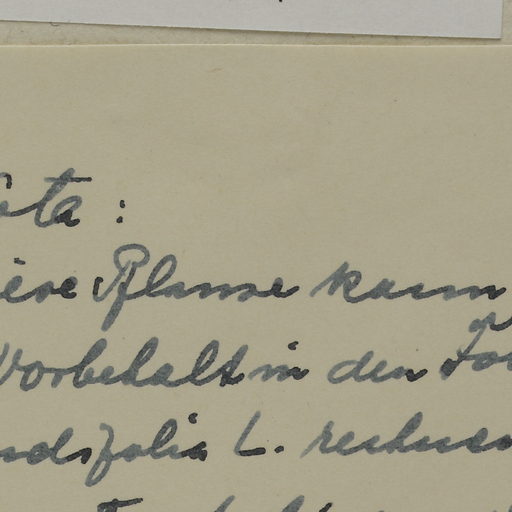 ota :
iese Pflanze kann
Vorbehalt in den For
ndifolia L.